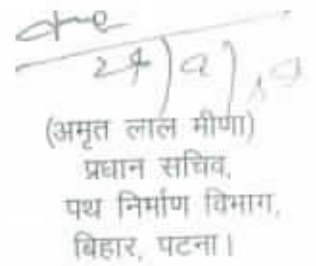 (अमृत लाल मीणा)
प्रधान सचिव,
पथ निर्माण विभाग,
बिहार, पटना।